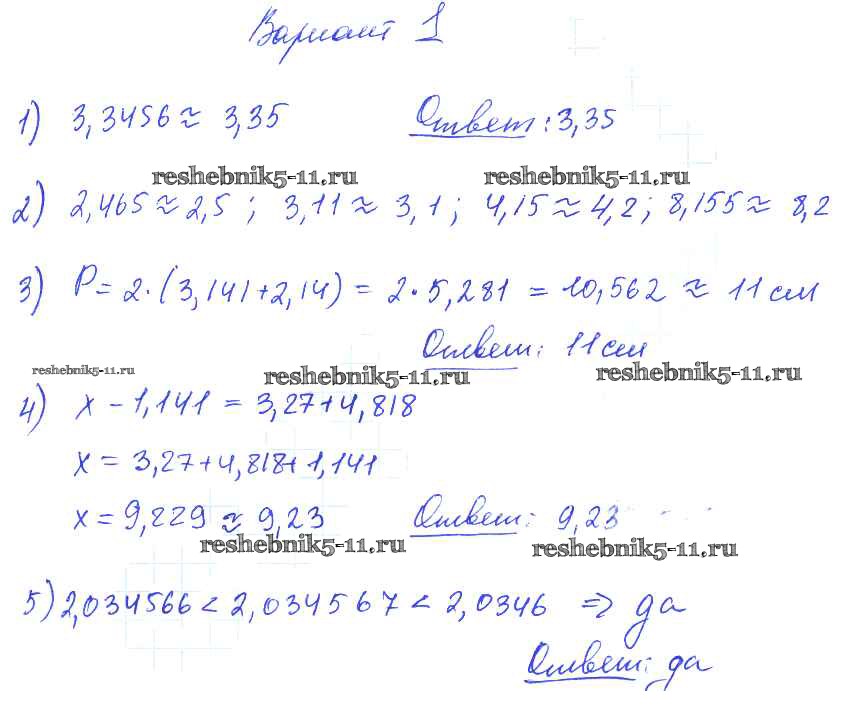 Вариант 1
1) 3,3456 ≈ 3,35 Ответ: 3,35
reshebnik5-11.ru reshebnik5-11.ru
2) 2,465 ≈ 2,5 ; 3,11 ≈ 3,1 ; 4,15 ≈ 4,2 ; 8,155 ≈ 8,2
3) P = 2·(3,141+2,14) = 2·5,281 = 10,562 ≈ 11 см
Ответ: 11 см
reshebnik5-11.ru reshebnik5-11.ru reshebnik5-11.ru
4) x - 1,141 = 3,27+4,818
x = 3,27+4,818+1,141
x = 9,229 ≈ 9,23 Ответ: 9,23
reshebnik5-11.ru reshebnik5-11.ru
5) 2,034566 < 2,034567 < 2,0346 ⇒ да
Ответ: да